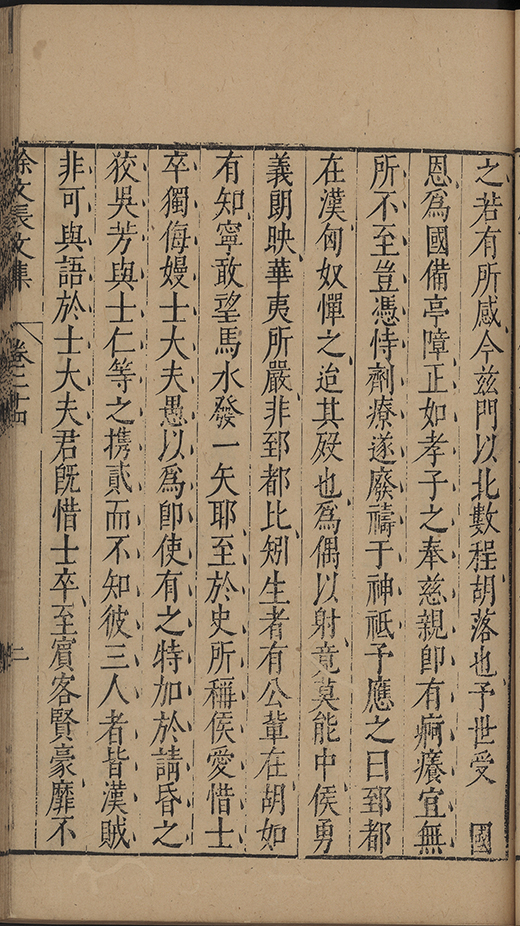 之若有所感今茲門以北數程胡落也予世受 國
恩爲國備亭障正如孝子之奉慈親卽有痾癢宜無
所不至豈憑恃劑療遂廢禱于神祗予應之曰郅都
在漢匈奴憚之迨其歿也爲偶以射竟莫能中侯勇
義朗映華夷所嚴非郅都比矧生者有公輩在胡如
有知寧敢望馬水發一矢耶至於史所稱侯愛惜士
卒獨侮嫚士大夫愚以爲卽使有之特加於請昏之
狡吳芳與士仁等之携貳而不知彼三人者皆漢賊
非可與語於士大夫君旣惜士卒至賓客賢豪靡不
徐文長文集 卷二十四 二